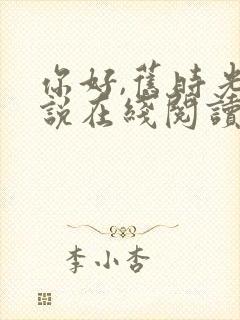 你好,舊時光
說在綫閱讀
李小杏